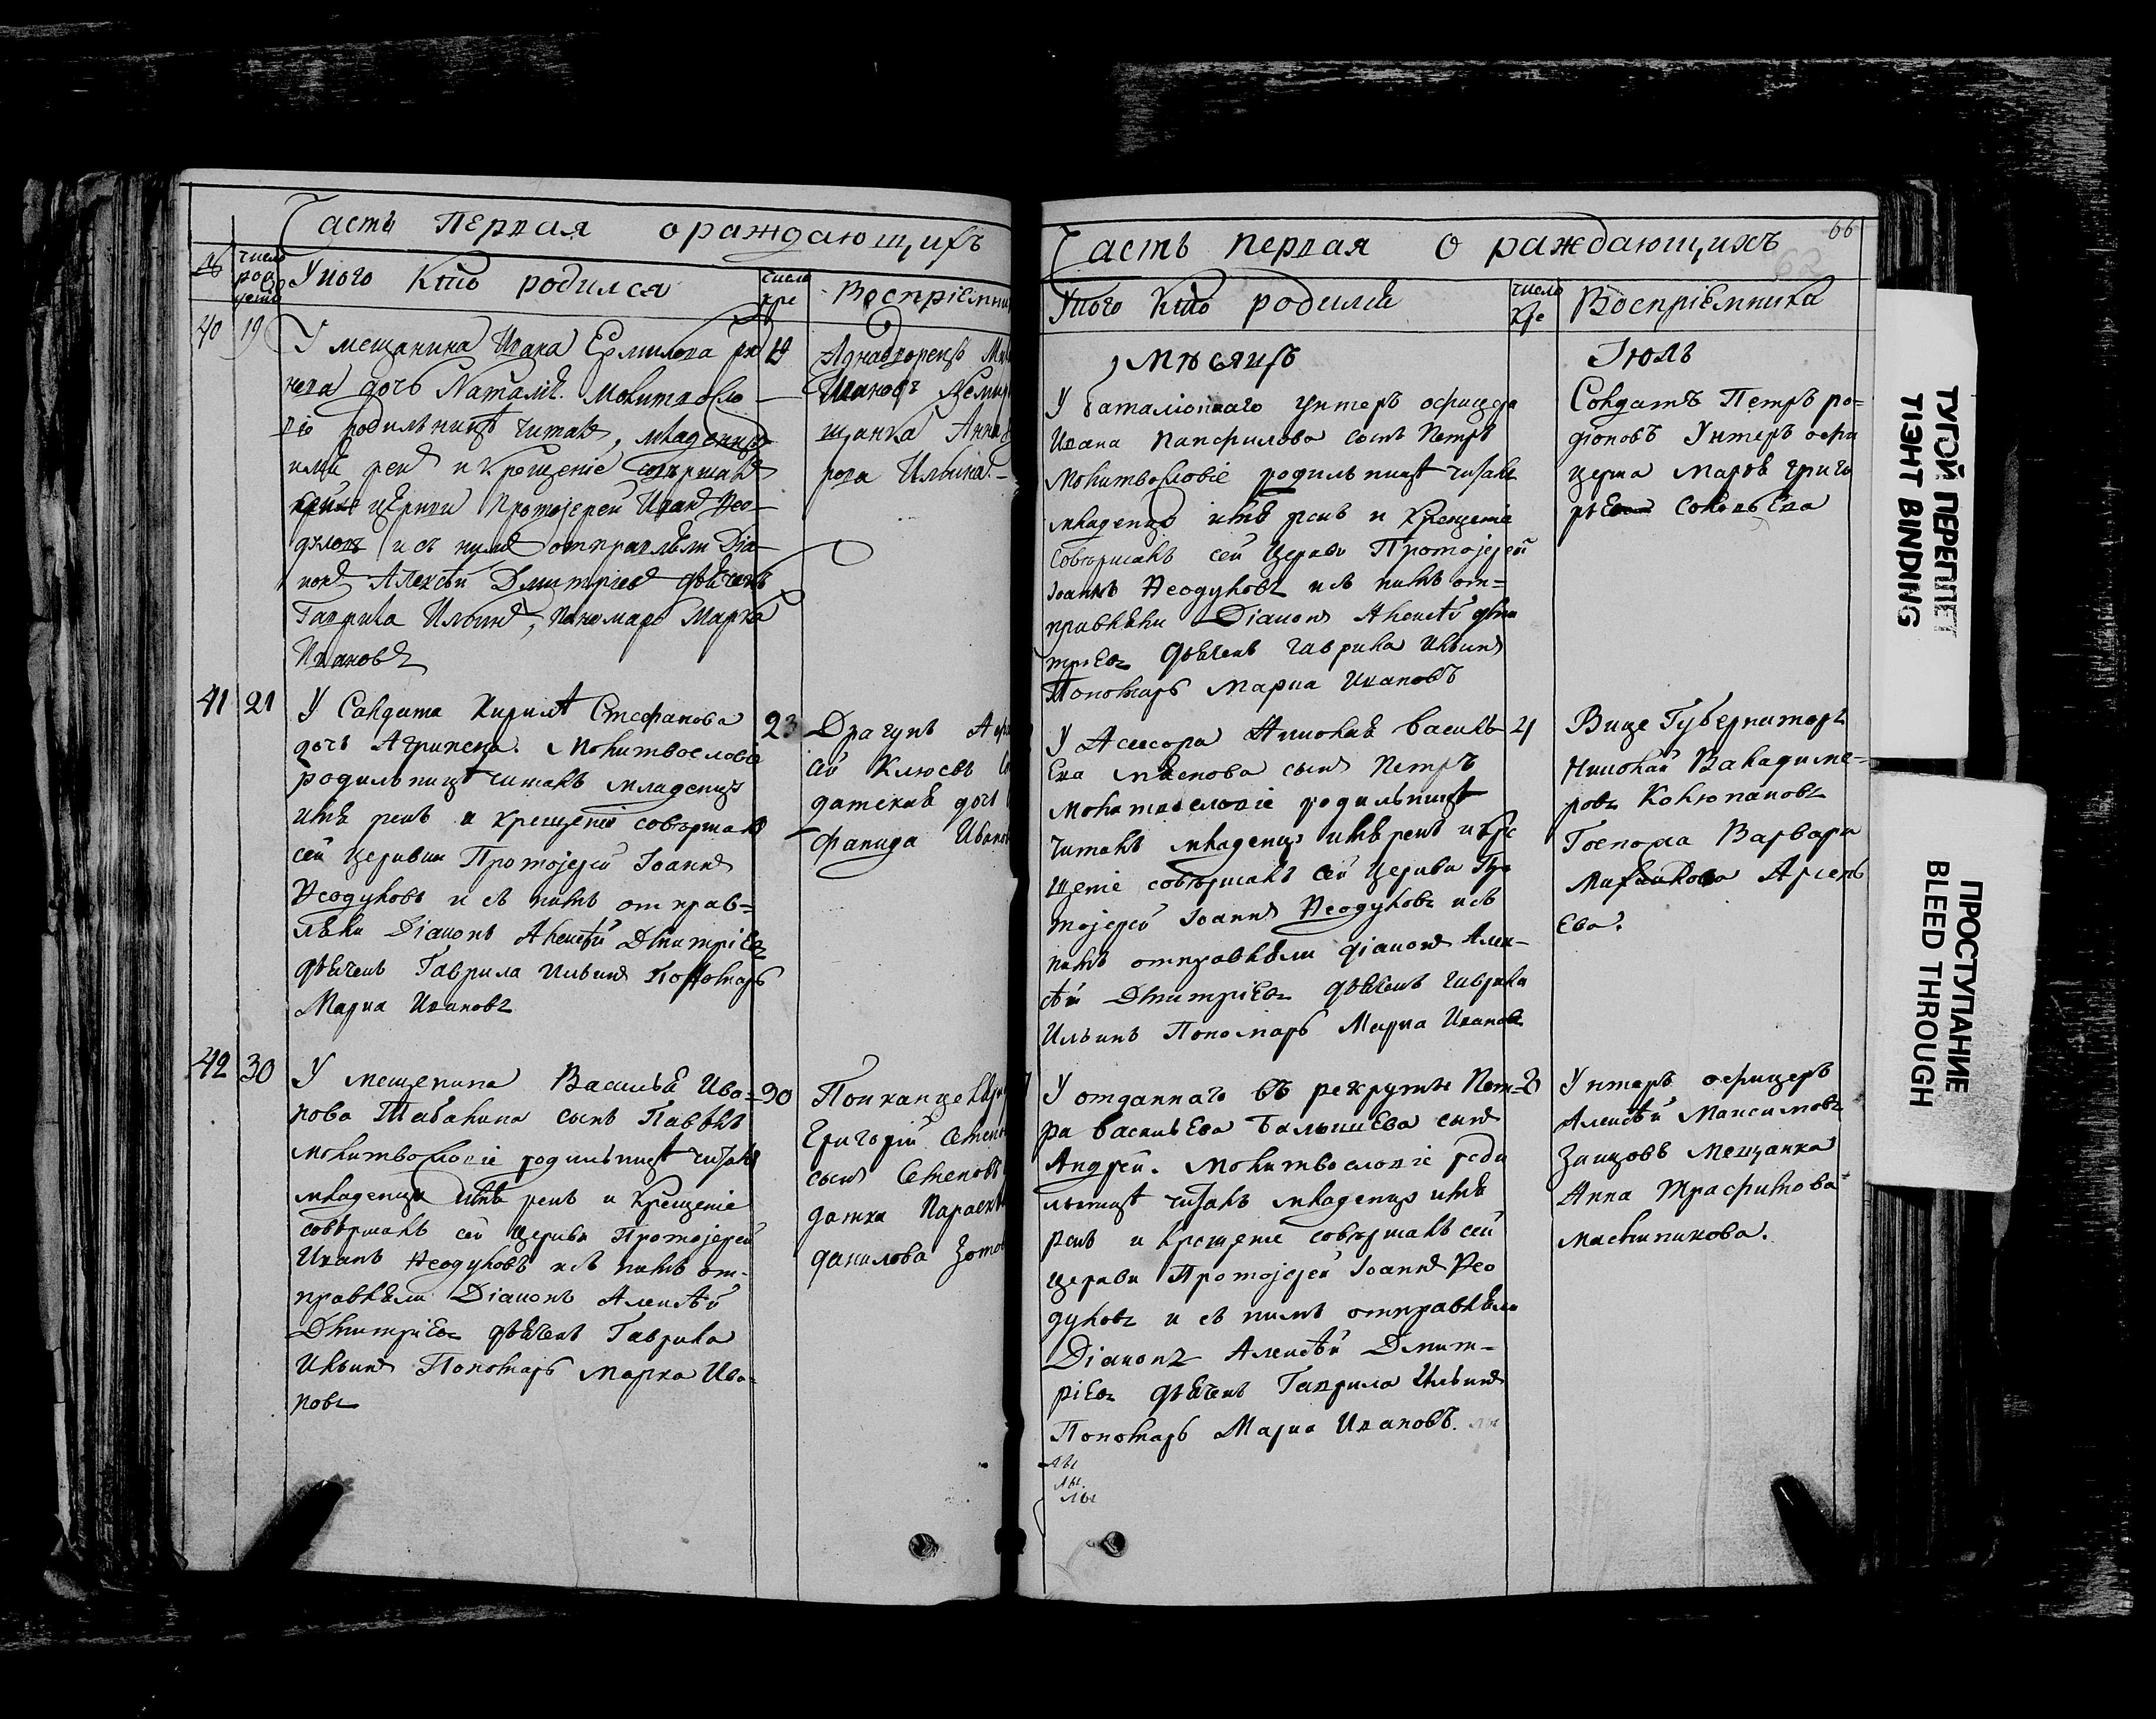 Часть Первая о раждающихъ
число рож
У ково Кто родился
число кре
Воспріемни
40 19
У мещанина Ивана Ермилова
дочь Наталiя. Молитвосло
віе родильницѣ читалъ, младенцу
имя рекъ и Крещеніе совершалъ
церкви Протоіерей Иванъ Нео
дуловъ и съ нимъ отправляли Діа
конъ Алексѣй Дмитріевъ дьячекъ
Гаврила Ильинъ, Пономарь Марко
Ивановъ
Аднодворецъ
Ивановъ
щанка Анна
рова Ильина.
41 21
У Салдата Кирилы Стефанова
дочь Агрипена. Молитвословіе
родильницѣ читалъ младенцу
имя рекъ и крещеніе совершалъ
сей Церкви Протоіерей Іоаннъ
Неодуловъ и съ нимъ отправ=
ляли Діаконъ Алексѣй Дмитріевъ
дьячекъ Гаврила Ильинъ Пономарь
Марко Ивановъ
23
Драгунъ
Клюевъ
датская дочь
Иванов
42 30
У мещенина Василья Ива=
нова Табакина сынъ Павелъ
молитвословіе родильницѣ читалъ
младенцу имя рекъ и Крещеніе
совершалъ сей Церкви Протоіерей
Иванъ Неодуловъ и съ нимъ от-
правляли Діаконъ Алексѣй
Дмитріевъ дьячекъ Гаврила
Ильинъ Пономарь Марко Ива-
новъ
30
Григорій Семен
сынъ Семеновъ
Параскев
данилова Зотов
Часть первая о раждающихъ 66
62
У ково Кто родился
число кре
Воспріемника
Мѣсяцъ Іюль
У Баталіоннаго унтеръ офицера
Ивана Панфилова сынъ Петръ
Молитвословіе родильницѣ читалъ
младенцу имя рекъ и Крещеніе
Совершалъ сей Церкви Протоіерей
Іоаннъ Неодуловъ и съ нимъ от=
правляли Діаконъ Алексѣй Дми
тріевъ дьячекъ Гаврила Ильинъ
Пономарь Марко Ивановъ
Солдатъ Петръ ро=
діоновъ Унтеръ офи
церша Марѳа григо
рьева Соловьева
У Асесора Николая Василь
сынъ Петръ
Молитвословіе родильницѣ
читалъ младенцу имя рекъ и кре
щеніе совершалъ сей Церкви Про
тоіерей Іоаннъ Неодуловъ и съ
нимъ отправляли діаконъ Алек-
сѣй Дмитріевъ дьячекъ Гаврила
Ильинъ Пономарь Марко Ивановъ
4
Вице Губернаторъ
Николай Валадиме-
ровъ
Госпожа Варвара
Михайлова Арсень
ева.
У отданнаго въ рекруты Пет=
ра Васильева сынъ
Андрей. Молитвословіе роди
льницѣ читалъ младенцу имя
рекъ и крещеніе совершалъ сей
церкви Протоіерей Іоаннъ Нео
дуловъ и съ нимъ отправляли
Діаконъ Алексѣй Дмит=
ріевъ дьячекъ Гаврила Ильинъ
Пономарь Марко Ивановъ.
8
Унтеръ офицеръ
Алексѣй Максимовъ
Заицовъ Мещанка
Анна Трафимова
Масленикова.
ТУГОЙ ПЕРЕПЛЕТ
TIGHT BINDING
ПРОСТУПАНИЕ
BLEED THROUGH